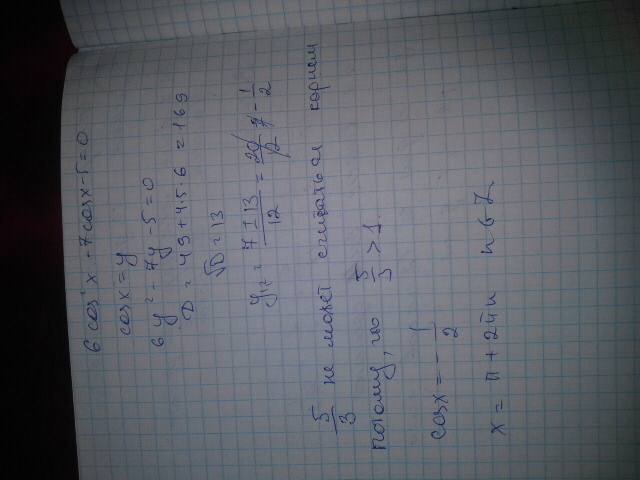 6 cos² x - 7 cos x - 5 = 0
cos x = y
6y² - 7y - 5 = 0
D = 49 + 4·5·6 = 169
√D = 13
y₁₂ = (7 ± 13)/12 = 20/12; -1/2
5/3 не может считаться корнем
потому, что 5/3 > 1.
cos x = -1/2
x = π + 2πn n ∈ Z